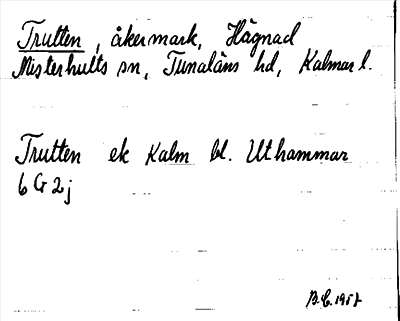 Trutten, åkermark, Hägnad
Misterhults sn, Tunaläns hd, Kalmar l.
Trutten ek Kalm bl. Uthammar
6 G 2 j
B.C. 1957